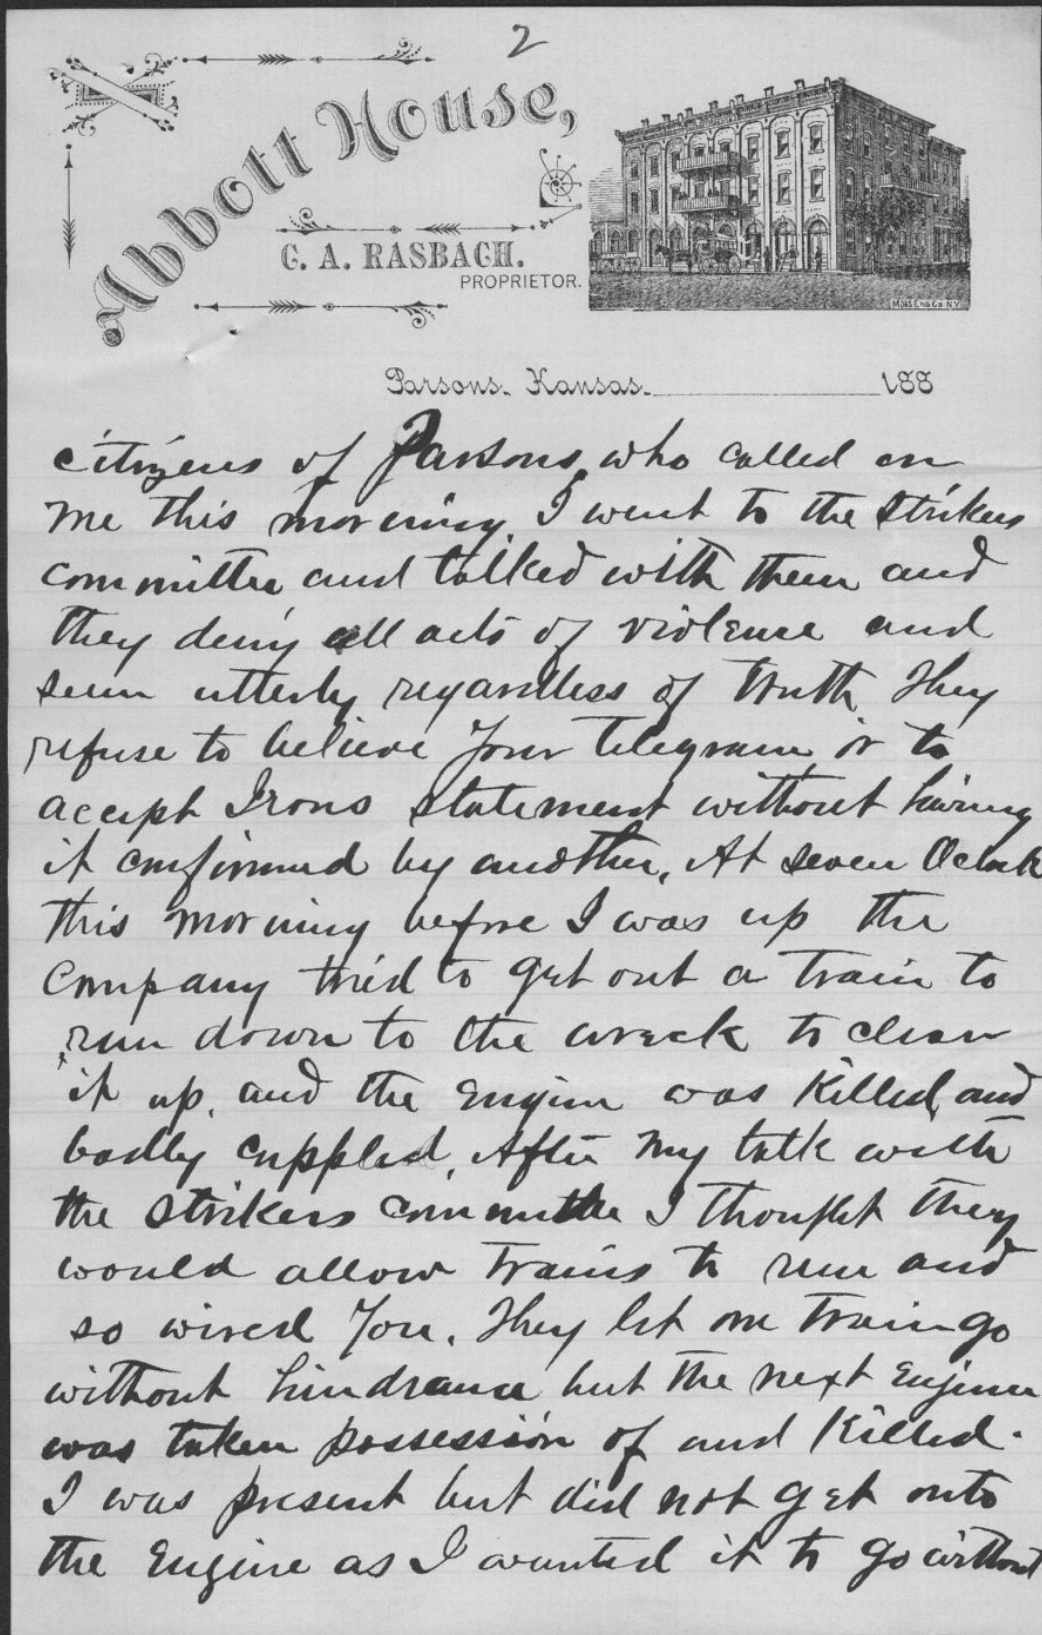 2
Abbott House,
G. A. RASBACH.
PROPRIETOR.
MOSS ENG Co N.Y.
Parsons. Kansas. 188
citizens of Parsons, who called on
me this morning. I went to the strikers
committee and talked with them and
they deny all acts of violence and
seem utterly regardless of truth. They
refuse to believe your telegram or to
accept Irons statement without having
it confirmed by another. At seven Oclock
this morning before I was up the
company tried to get out a train to
run down to the wreck to clear
it up, and the Engine was Killed, and
badly crippled. After my talk with
the strikers committee I thought they
would allow trains to run and
so wired you. They let one train go
without hindrance but the next Engine
was taken possession of and Killed.
I was present but did not get onto
the Engine as I wanted it to go without